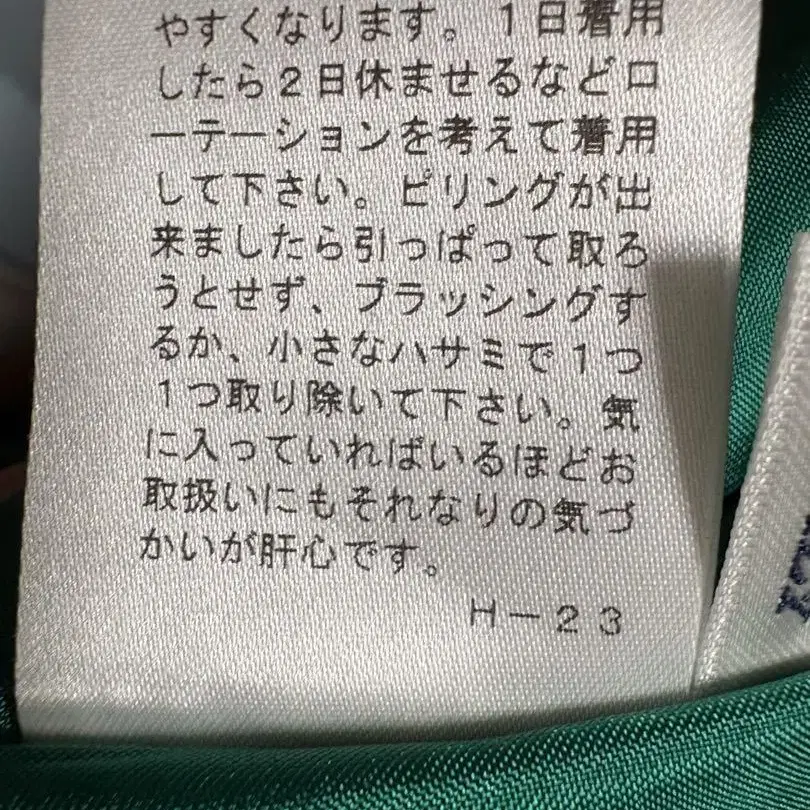 やすくなります。1日着用
したら2日休ませるなどロ
ーテーションを考えて着用
して下さい。ピリングが出
来ましたら引っぱって取ろ
うとせず、ブラッシングす
るか、小さなハサミで1つ
1つ取り除いて下さい。気
に入っていればいるほどお
取扱いにもそれなりの気づ
かいが肝心です。
H-23